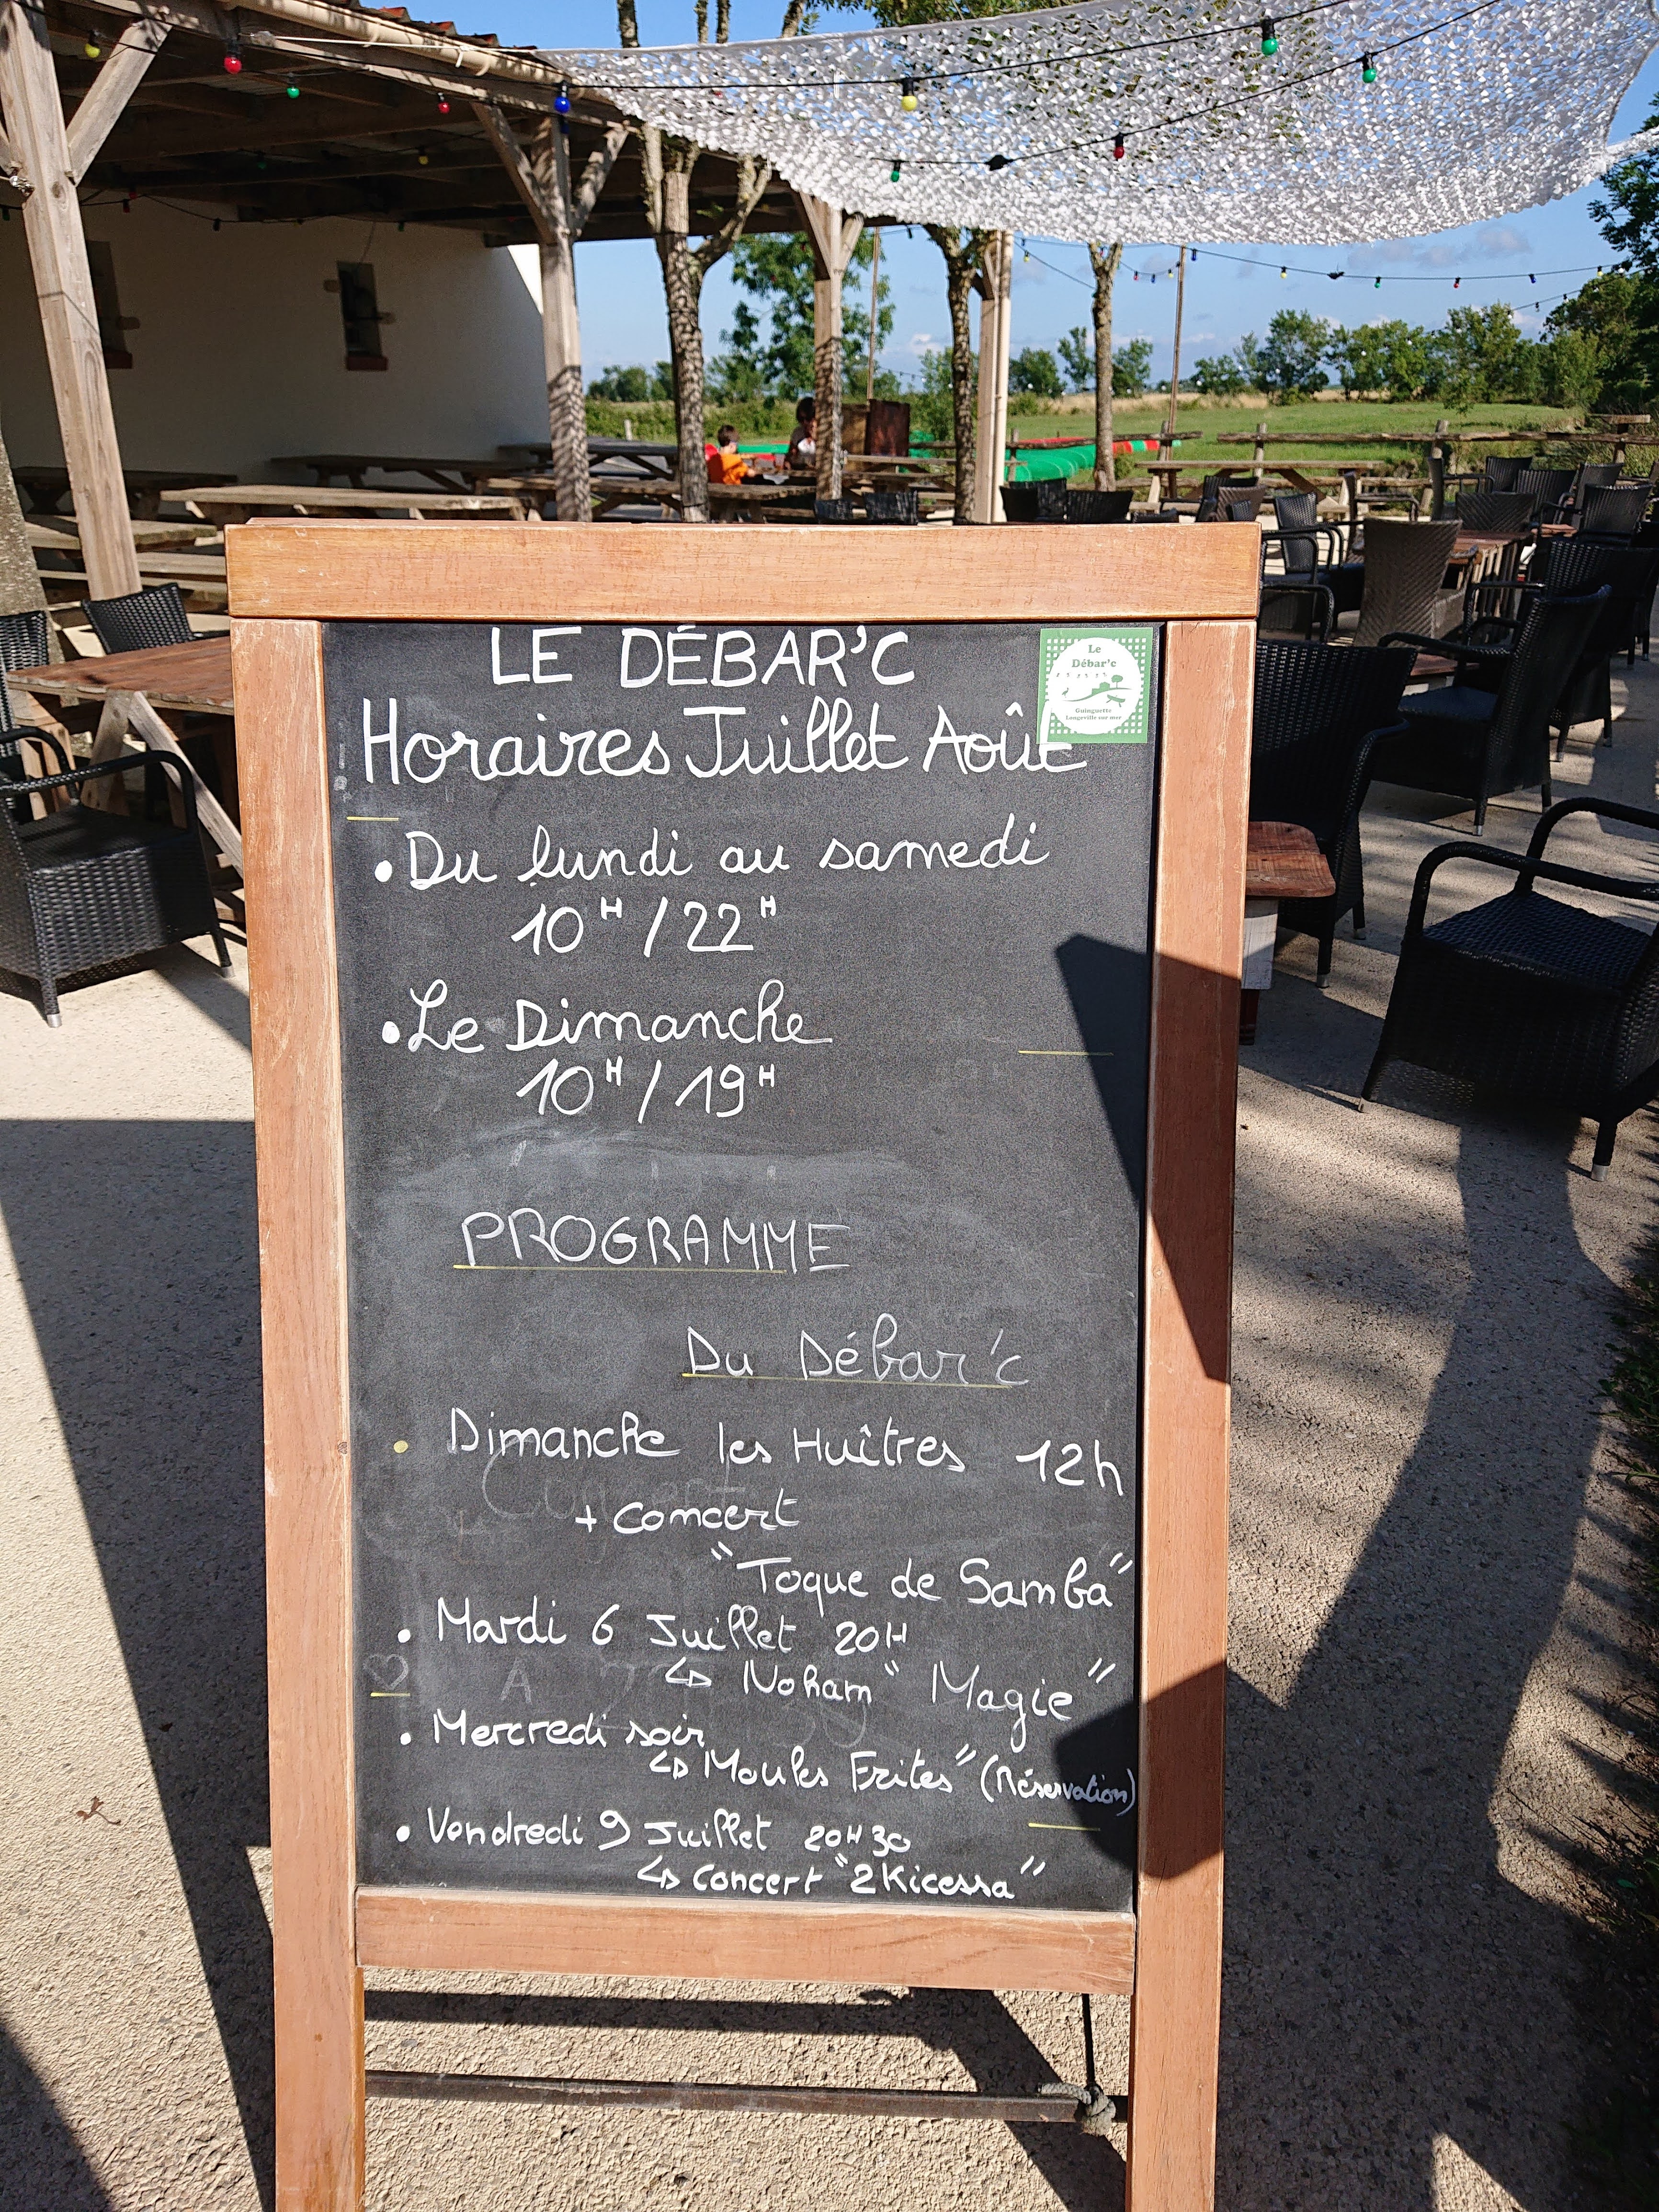 LE DÉBAR'C
Le
Débar'c
Guinguette
Longeville sur mer
Horaires Juillet Août
• Du lundi au samedi
10H / 22H
• Le Dimanche
10H / 19H
PROGRAMME
Du Débar'c
• Dimanche les Huîtres 12h
+ concert
"Toque de Samba"
• Mardi 6 Juillet 20H
↳ Noham "Magie"
• Mercredi soir
↳ Moules Frites" (Réservation)
• Vendredi 9 Juillet 20H30
↳ concert "2Kicessa"